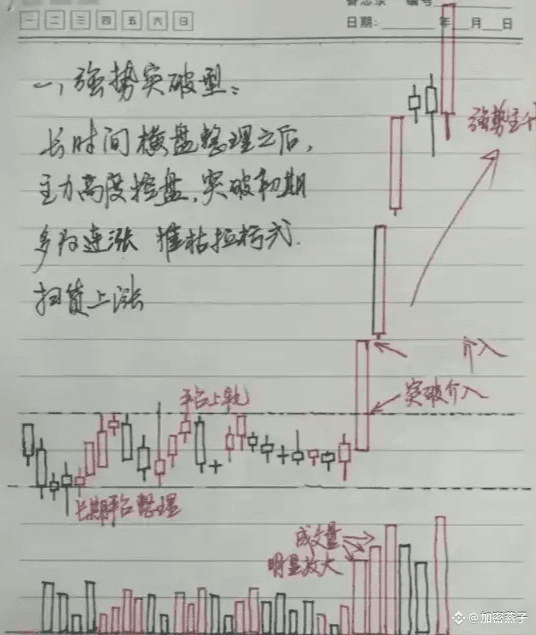 备忘录 编号
一 二 三 四 五 六 日
日期: 年 月 日
一、强势突破型:
长时间横盘整理之后,
主力高度控盘,突破初期
多为连涨 推枯拉朽式
扫货上涨
强势主升
介入
突破介入
平台上轨
长期平台整理
成交量
明显放大
加密燕子